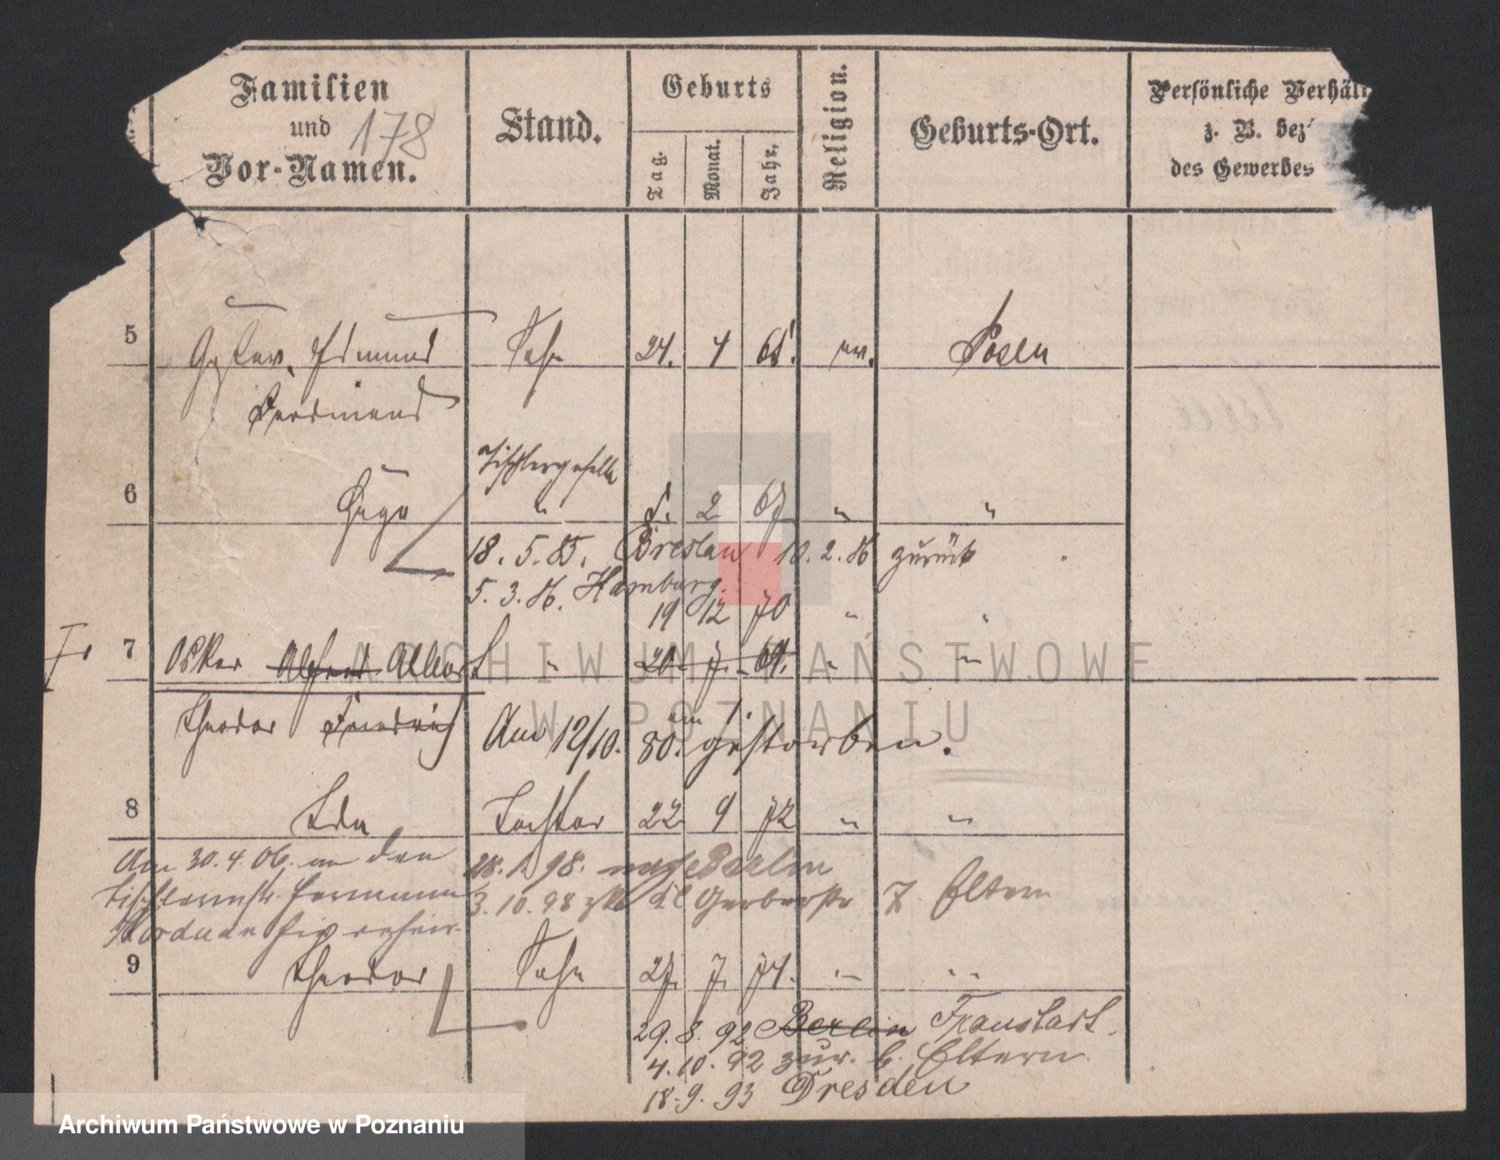 Familien
und
Vor-Namen.
178
Stand.
Geburts
Tag.
Monat.
Jahr.
Religion.
Geburts-Ort.
Persönliche Verhäl
z. B. bez
des Gewerbes
5 Gustav, Edmund Sohn 24. 4 65. ev. Posen
Ferdinand
Tischlergeselle
6 Hugo " 5. 2 67 " "
18. 5. 85. Breslau 10. 2. 86 zurück
5. 3. 86. Hamburg.
19 12 70 " "
7 Oskar Alfred Albert " 20. 7. 69. " "
Theodor Friedrich Am 12/10. 80. gestorben.
8 Ida Tochter 22 9 72 " "
Am 30. 4. 06. an den 28. 1. 98. nach Berlin
Tischlermstr. Hermann 3. 10. 98 zk Gerberstr 7 Eltern
Nordmann
9 Theodor Sohn 27. 7. 74. " "
29. 8. 92 Berlin Fraustadt.
4. 10. 92 zur. b. Eltern
18. 9. 93 Dresden
ARCHIWUM PAŃSTWOWE
W POZNANIU
Archiwum Państwowe w Poznaniu